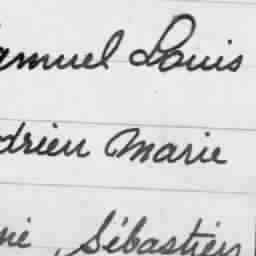 amuel Louis
drien Marie
né, Sébastien